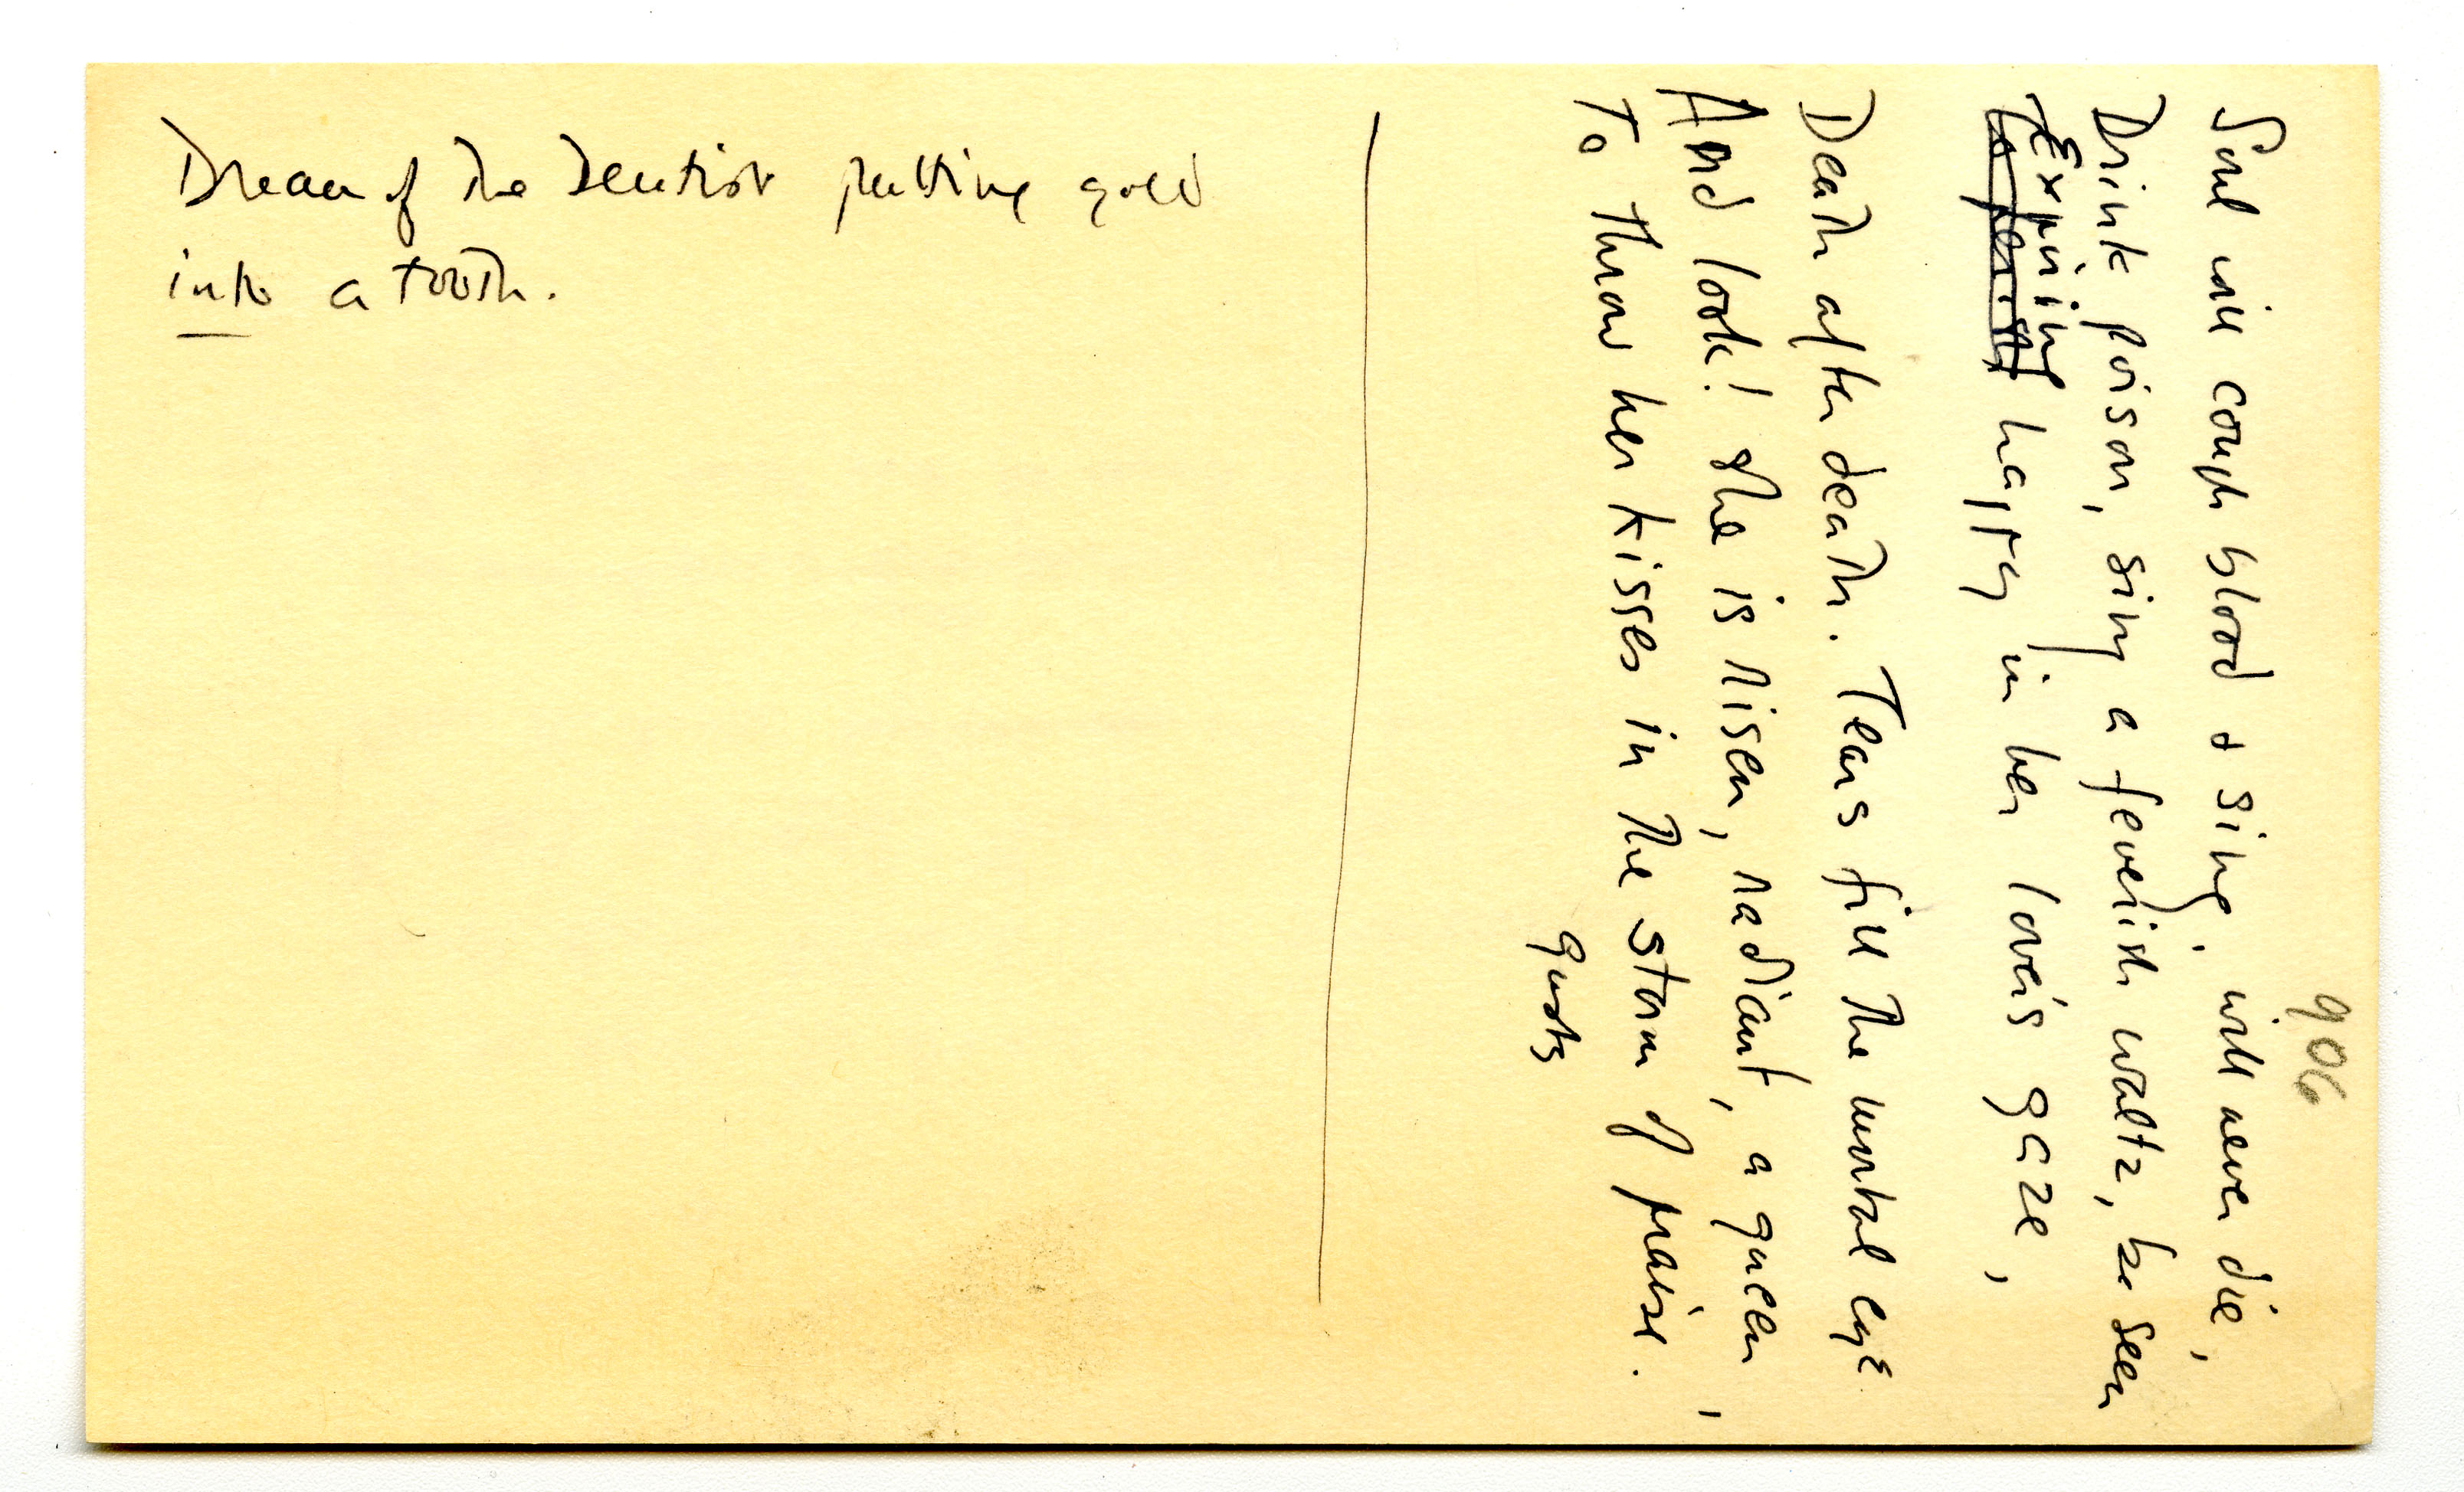 Dream of the Dentist putting gold
into a tooth.
906
Soul will cough blood & sing, will never die,
Drink poison, sing a feverish waltz, be seen
Expiring happy in her lover's gaze,
Death after death. Tears fill the mortal eye
And look! She is risen, radiant, a queen,
To throw her kisses in the storm of praise.
gusts